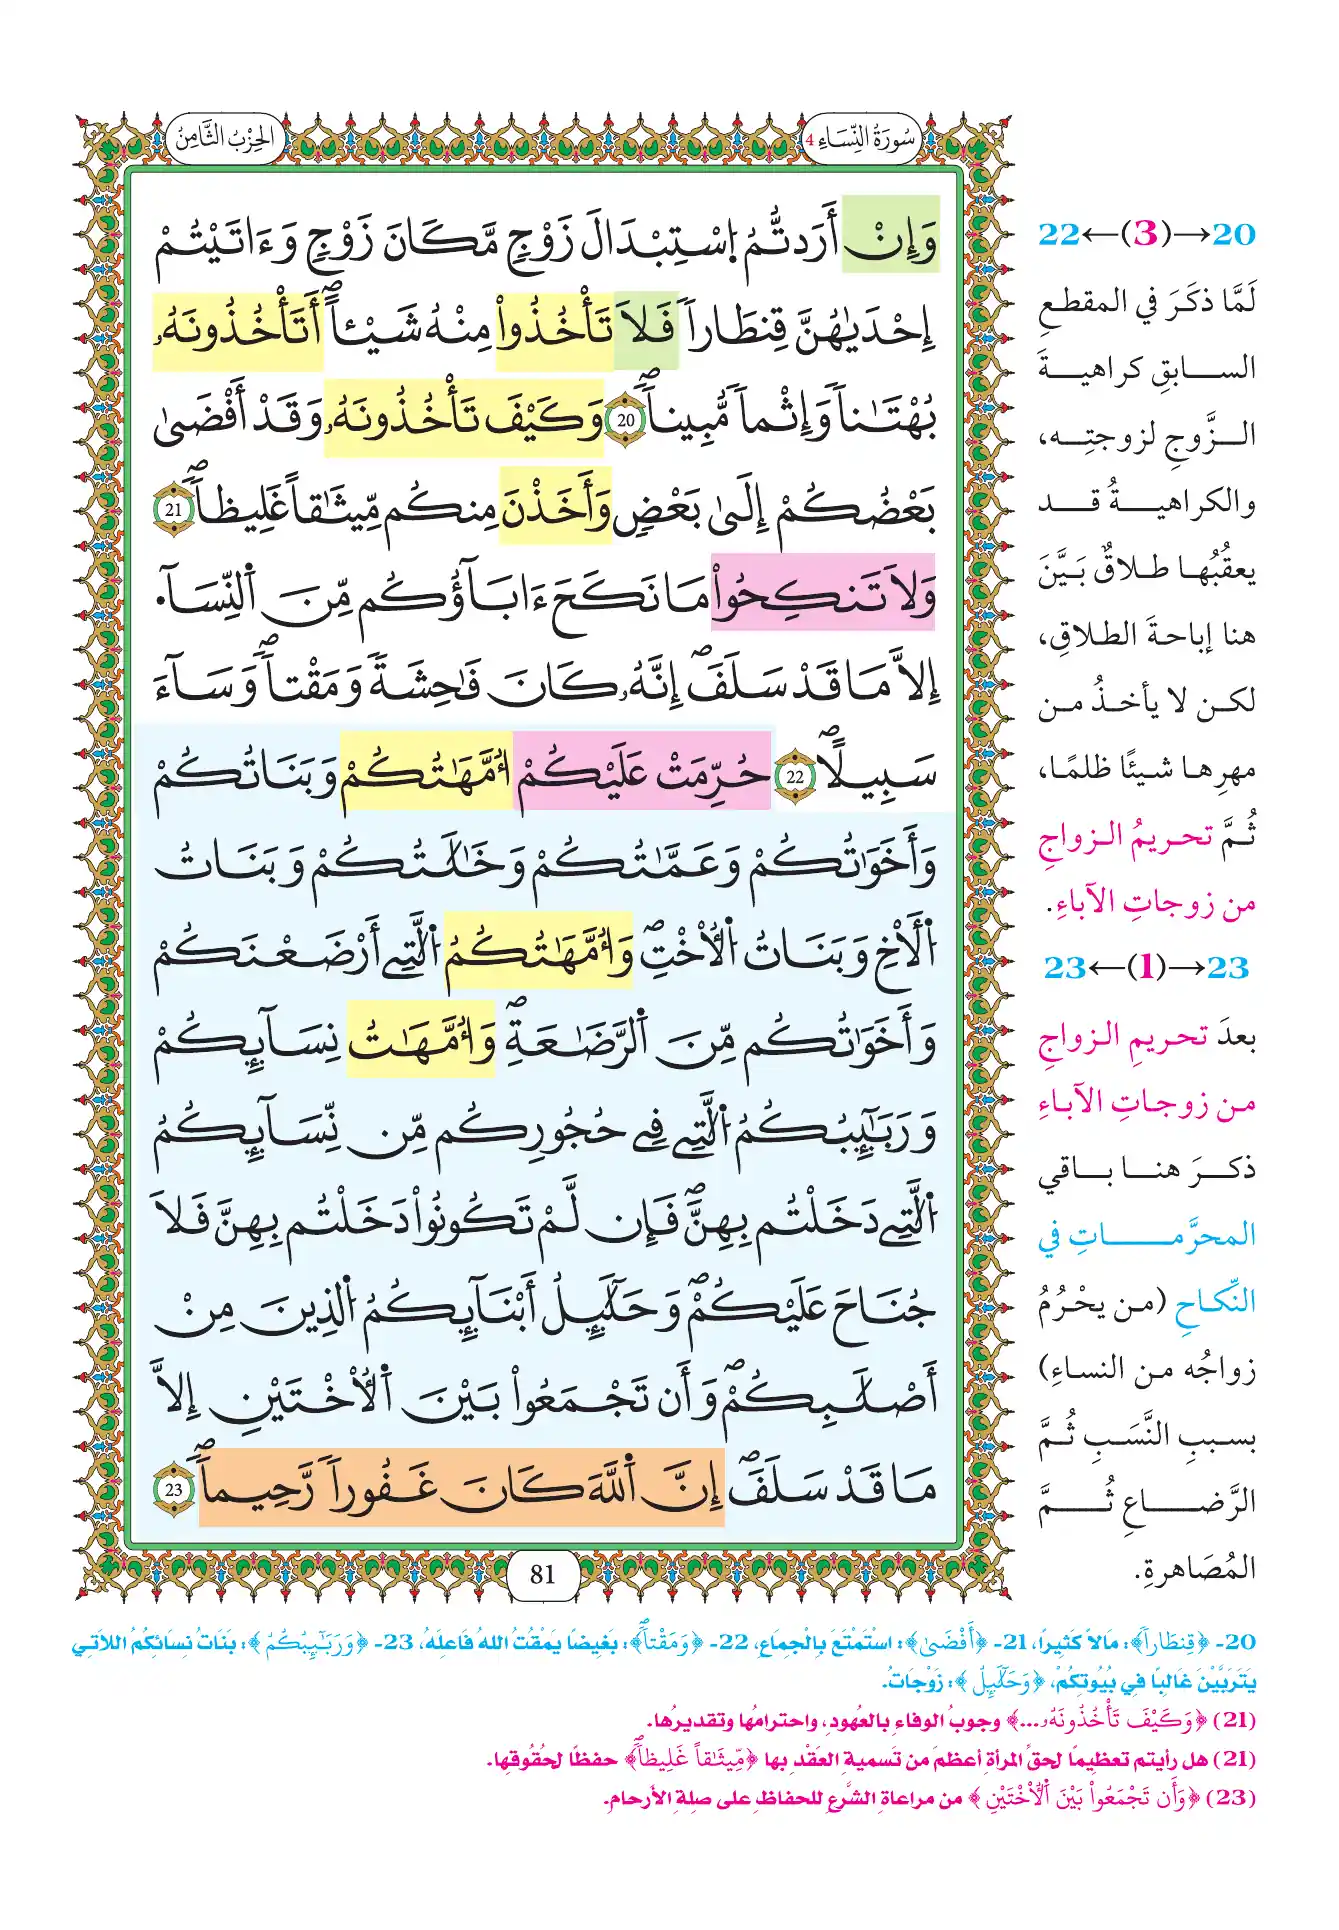 سُورَةُ النِّسَاءِ 4
الحِزْبُ الثَّامِنُ
وَإِنْ أَرَدتُّمُ اِسْتِبْدَالَ زَوْجٍ مَّكَانَ زَوْجٍ وَءَاتَيْتُمْ
إِحْدَيٰهُنَّ قِنطَاراٗ فَلَا تَأْخُذُواْ مِنْهُ شَيْـٔاًۖ أَتَأْخُذُونَهُۥ
بُهْتَٰناٗ وَإِثْماٗ مُّبِيناٗۖ 20 وَكَيْفَ تَأْخُذُونَهُۥ وَقَدْ أَفْضَىٰ
بَعْضُكُمْ إِلَىٰ بَعْضٖ وَأَخَذْنَ مِنكُم مِّيثَٰقاً غَلِيظاٗۖ 21
وَلَا تَنكِحُواْ مَا نَكَحَ ءَابَآؤُكُم مِّنَ اَ۬لنِّسَآءِ
اِلَّا مَا قَدْ سَلَفَۖ إِنَّهُۥ كَانَ فَٰحِشَةٗ وَمَقْتاٗۖ وَسَآءَ
سَبِيلًاۖ 22 حُرِّمَتْ عَلَيْكُمُۥٓ أُمَّهَٰتُكُمْ وَبَنَاتُكُمْ
وَأَخَوَٰتُكُمْ وَعَمَّٰتُكُمْ وَخَٰلَٰتُكُمْ وَبَنَاتُ
اُ۬لَاخِ وَبَنَاتُ اُ۬لُاخْتِۖ وَأُمَّهَٰتُكُمُ اُ۬لَّٰتِےٓ أَرْضَعْنَكُمْ
وَأَخَوَٰتُكُم مِّنَ اَ۬لرَّضَٰعَةِۖ وَأُمَّهَٰتُ نِسَآئِكُمْ
وَرَبَٰٓئِبُكُمُ اُ۬لَّٰتِے فِے حُجُورِكُم مِّن نِّسَآئِكُمُ
اُ۬لَّٰتِے دَخَلْتُم بِهِنَّۖ فَإِن لَّمْ تَكُونُواْ دَخَلْتُم بِهِنَّ فَلَا
جُنَاحَ عَلَيْكُمْۖ وَحَلَٰٓئِلُ أَبْنَآئِكُمُ اُ۬لذِينَ مِنْ
أَصْلَٰبِكُمْۖ وَأَن تَجْمَعُواْ بَيْنَ اَ۬لُاخْتَيْنِ إِلَّا
مَا قَدْ سَلَفَۖ إِنَّ اَ۬للَّهَ كَانَ غَفُوراٗ رَّحِيماٗۖ 23
81
20→(3)←22
لَمَّا ذكَرَ في المقطعِ
السابقِ كراهيةَ
الزَّوجِ لزوجتِه،
والكراهيةُ قد
يعقُبُها طلاقٌ بَيَّنَ
هنا إباحةَ الطلاقِ،
لكن لا يأخذُ من
مهرِها شيئًا ظلمًا،
ثُمَّ تحريمُ الزواجِ
من زوجاتِ الآباءِ.
23→(1)←23
بعدَ تحريمِ الزواجِ
من زوجاتِ الآباءِ
ذكرَ هنا باقي
المحرَّماتِ في
النِّكاحِ (من يحْرُمُ
زواجُه من النساءِ)
بسببِ النَّسَبِ ثُمَّ
الرَّضاعِ ثُمَّ
المُصَاهرةِ.
20- ﴿قِنطَاراٗ﴾: مَالًا كَثِيرًا، 21- ﴿أَفْضَىٰ﴾: اسْتَمْتَعَ بِالْجِمَاعِ، 22- ﴿وَمَقْتاٗۖ﴾: بَغِيضًا يَمْقُتُ اللهُ فَاعِلَهُ، 23- ﴿وَرَبَٰٓئِبُكُمُ﴾: بَنَاتُ نِسَائِكُمُ اللَّاتِي
يَتَرَبَّيْنَ غَالِبًا فِي بُيُوتِكُمْ، ﴿وَحَلَٰٓئِلُ﴾: زَوْجَاتُ.
(21) ﴿وَكَيْفَ تَأْخُذُونَهُۥ...﴾ وجوبُ الوفاءِ بالعُهودِ، واحترامُها وتقديرُها.
(21) هل رأيتم تعظيمًا لحقِّ المرأةِ أعظمَ من تَسميةِ العَقْدِ بها ﴿مِّيثَٰقاً غَلِيظاٗۖ﴾ حفظًا لحُقُوقِها.
(23) ﴿وَأَن تَجْمَعُواْ بَيْنَ اَ۬لُاخْتَيْنِ﴾ من مراعاةِ الشَّرعِ للحفاظِ على صلةِ الأرحامِ.